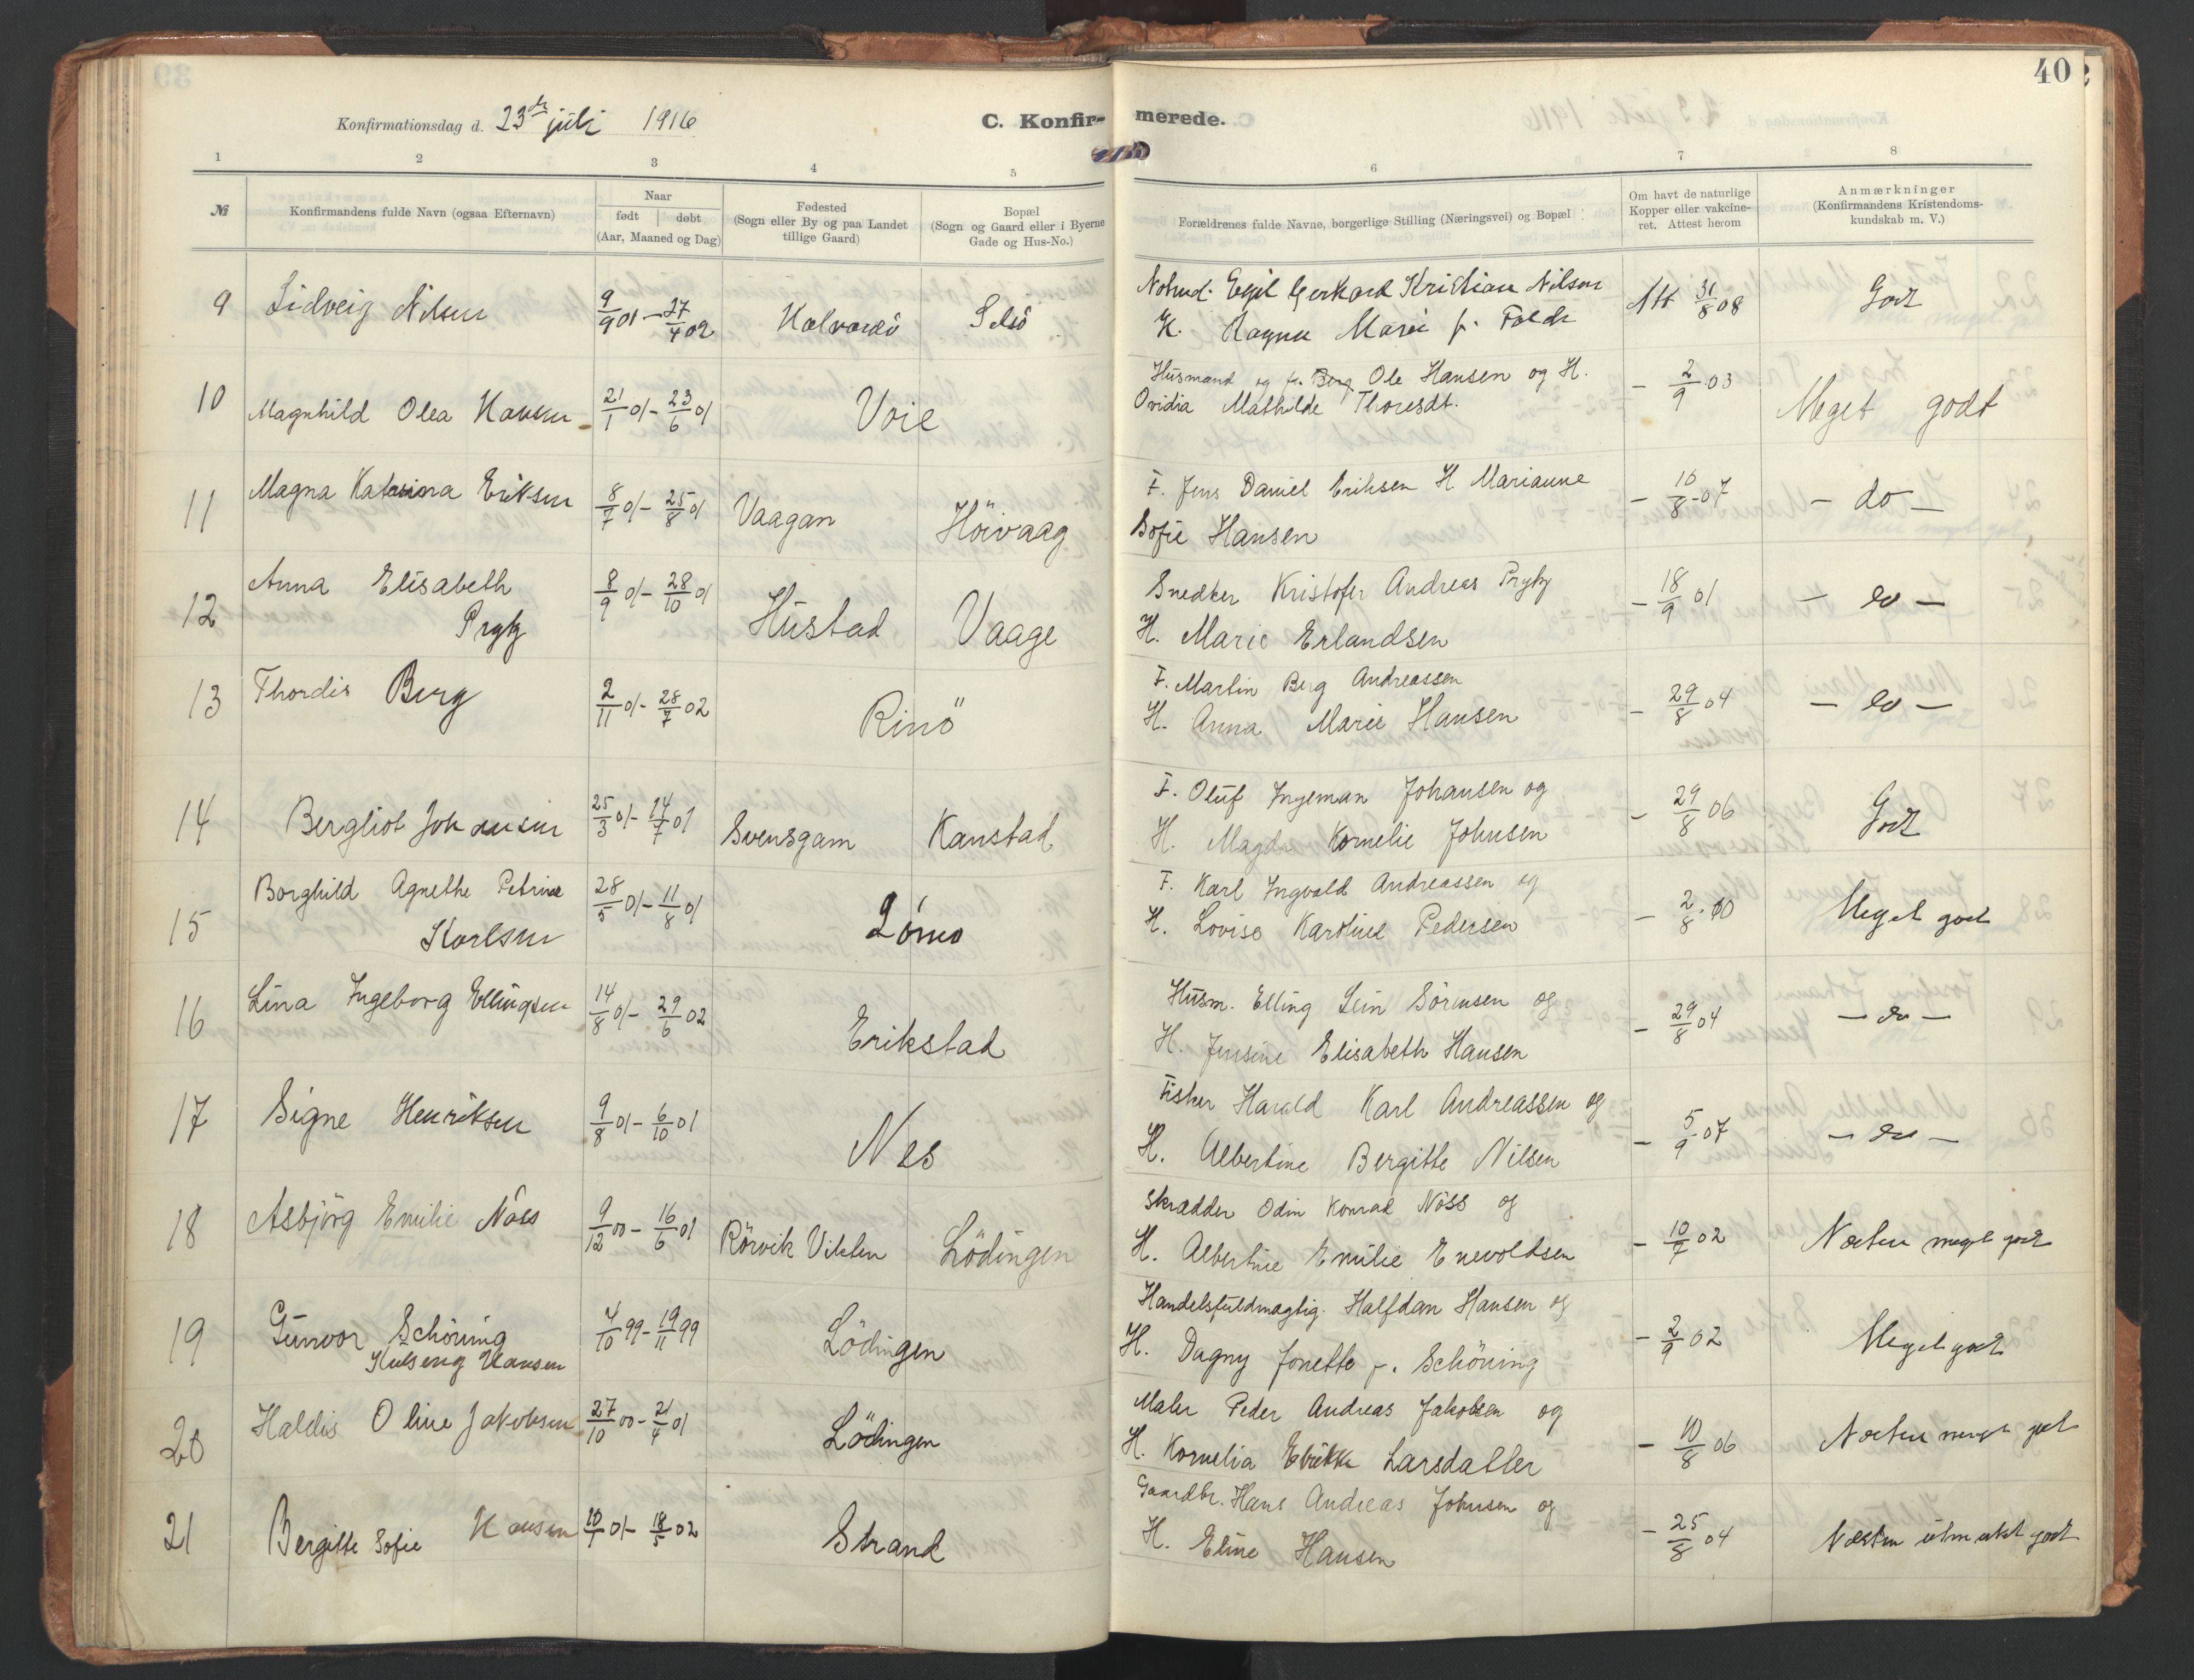 40
Konfirmationsdag d. 23de juli 1916
C. Konfir- merede.
1 2 3 4 5 6 7 8
№ Konfirmandens fulde Navn (ogsaa Efternavn) Naar født døbt (Aar, Maaned og Dag) Fødested (Sogn eller By og paa Landet tillige Gaard) Bopæl (Sogn og Gaard eller i Byerne Gade og Hus-No.) Forældrenes fulde Navne, borgerlige Stilling (Næringsvei) og Bopæl Om havt de naturlige Kopper eller vakcineret. Attest herom Anmærkninger (Konfirmandens Kristendomskundskab m. V.)
9 Lidveig Nilsen 9/9 01 – 27/4 02 Selsö Egil Gerhard Kristian Nilsen Att 31/8 08 Godt
H. Ragna Marie f. Folde
10 Magnhild Olea Hansen 21/1 01 – 23/6 01 Voie Husmand og fi. Berg Ole Hansen og H. – 2/9 03 Meget godt
Ovidia Mathilde Thoresdt.
11 Magna Katarina Eriksen 8/7 01 – 25/8 01 Vaagan Höivaag F. Jens Daniel Eriksen H. Marianne – 10/8 07 – do –
Sofie Hansen
12 Anna Elisabeth 8/9 01 – 28/10 01 Hustad Vaage Snedker Kristofer Andreas Prytz – 18/9 01 – do –
Prytz H. Marie Erlandsen
13 Thordis Berg 2/11 01 – 28/7 02 Rinö F. Martin Berg Andreassen – 29/8 04 – do –
H. Anna Marie Hansen
14 Bergliot Johansen 25/3 01 – 14/7 01 Svensgam Kanstad F. Oluf Ingeman Johansen og – 29/8 06 Godt
H. Magda Kornelie Johnsen
15 Borghild Agnethe Petrine 28/5 01 – 11/8 01 Lömo F. Karl Ingvald Andreassen og – 2/8 10 Meget godt
Karlsen H. Lovise Karoline Pedersen
16 Lina Ingeborg Ellingsen 14/8 01 – 29/6 02 Erikstad Husm. Elling Sein Sörensen og – 29/8 04 – do –
H. Jensine Elisabeth Hansen
17 Signe Henriksen 9/8 01 – 6/10 01 Nes Fisker Harald Karl Andreassen og – 5/9 07 – do –
H. Albertine Bergitte Nilsen
18 Asbjörg Emilie Nöss 9/12 00 – 16/6 01 Rörvik Vikten Lödingen Skrædder Odin Konrad Nöss og – 10/7 02 Næsten meget godt
H. Albertine Emilie Enevoldsen
19 Gunvor Schöning 4/10 99 – 19/11 99 Lödingen Handelsfuldmægtig Halfdan Hansen og – 2/9 02 Meget godt
Hulseng Hansen H. Dagny Jonette f. Schöning
20 Haldis Oline Jakobsen 27/10 00 – 21/4 01 Lödingen Maler Peder Andreas Jakobsen og – 10/8 06 Næsten meget godt
H. Kornelia Erikka Larsdatter
21 Bergitte Sofie Hansen 10/1 01 – 18/5 02 Strand Gaardbr. Hans Andreas Johnsen og – 25/8 04 Næsten udm. godt
H. Eline Hansen